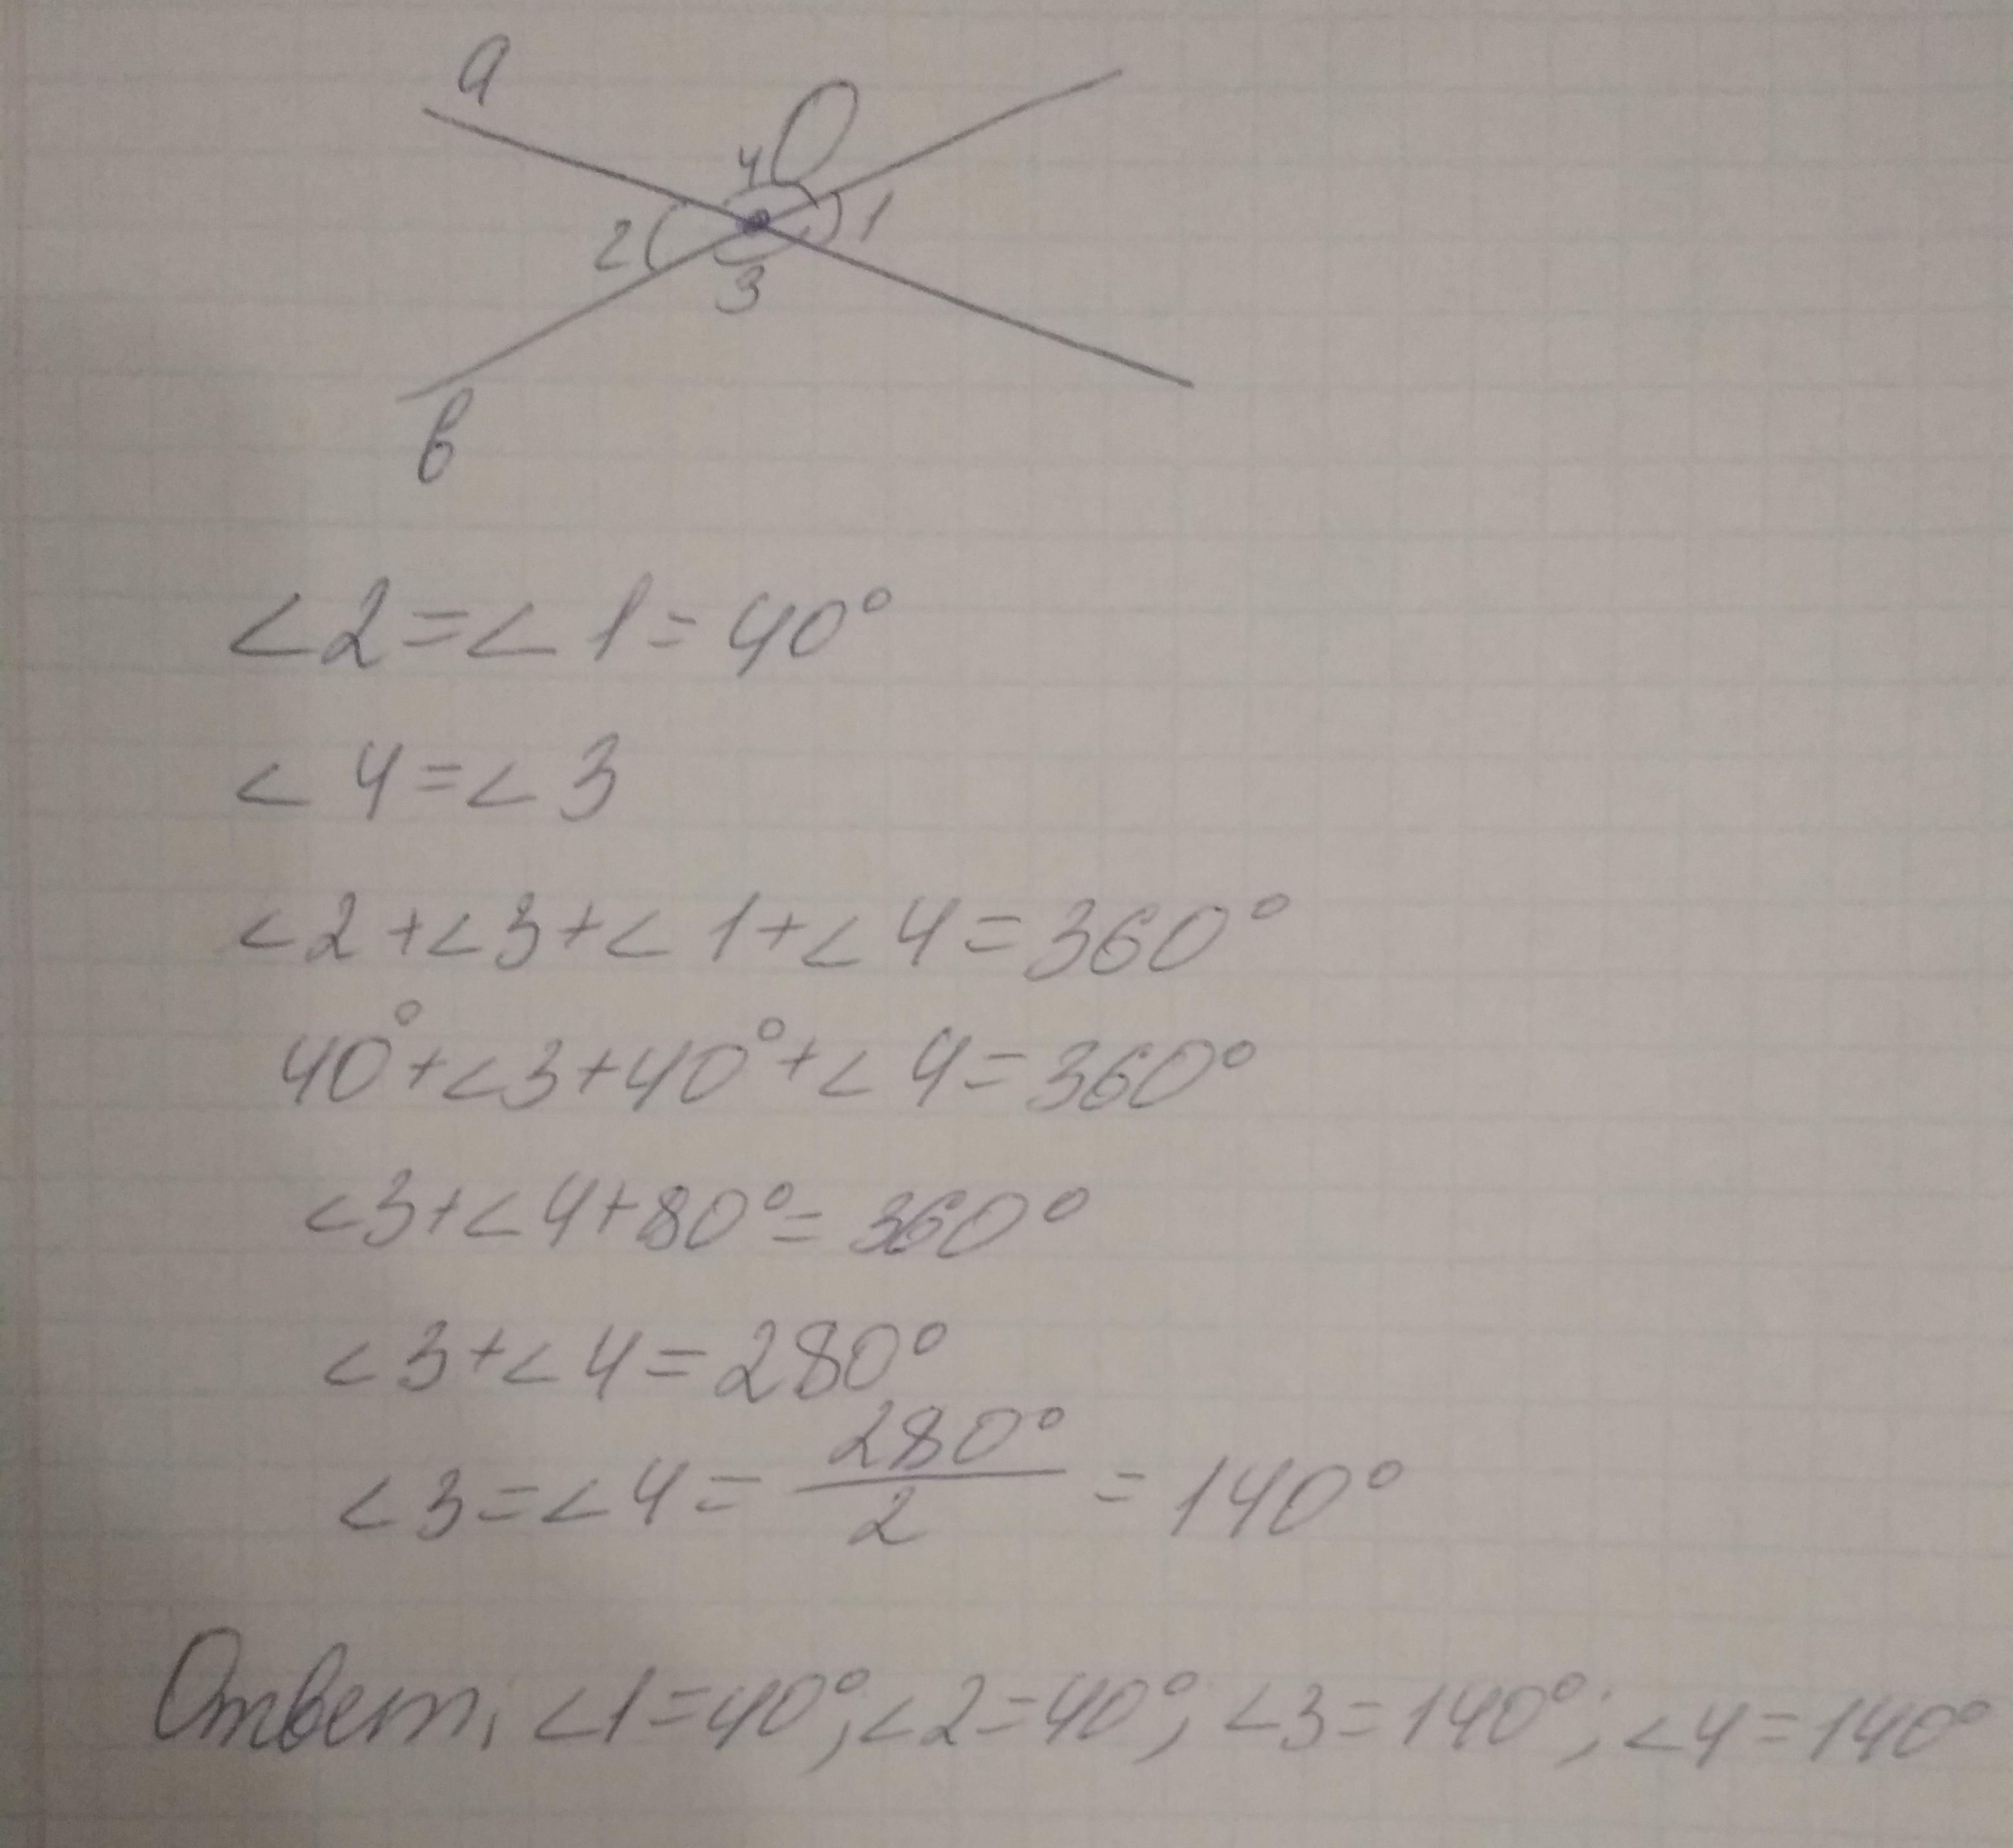 a
O
4
2
1
3
b
∠2=∠1=40°
∠4=∠3
∠2+∠3+∠1+∠4=360°
40°+∠3+40°+∠4=360°
∠3+∠4+80°=360°
∠3+∠4=280°
∠3=∠4=280°/2=140°
Ответ: ∠1=40°; ∠2=40°; ∠3=140°; ∠4=140°